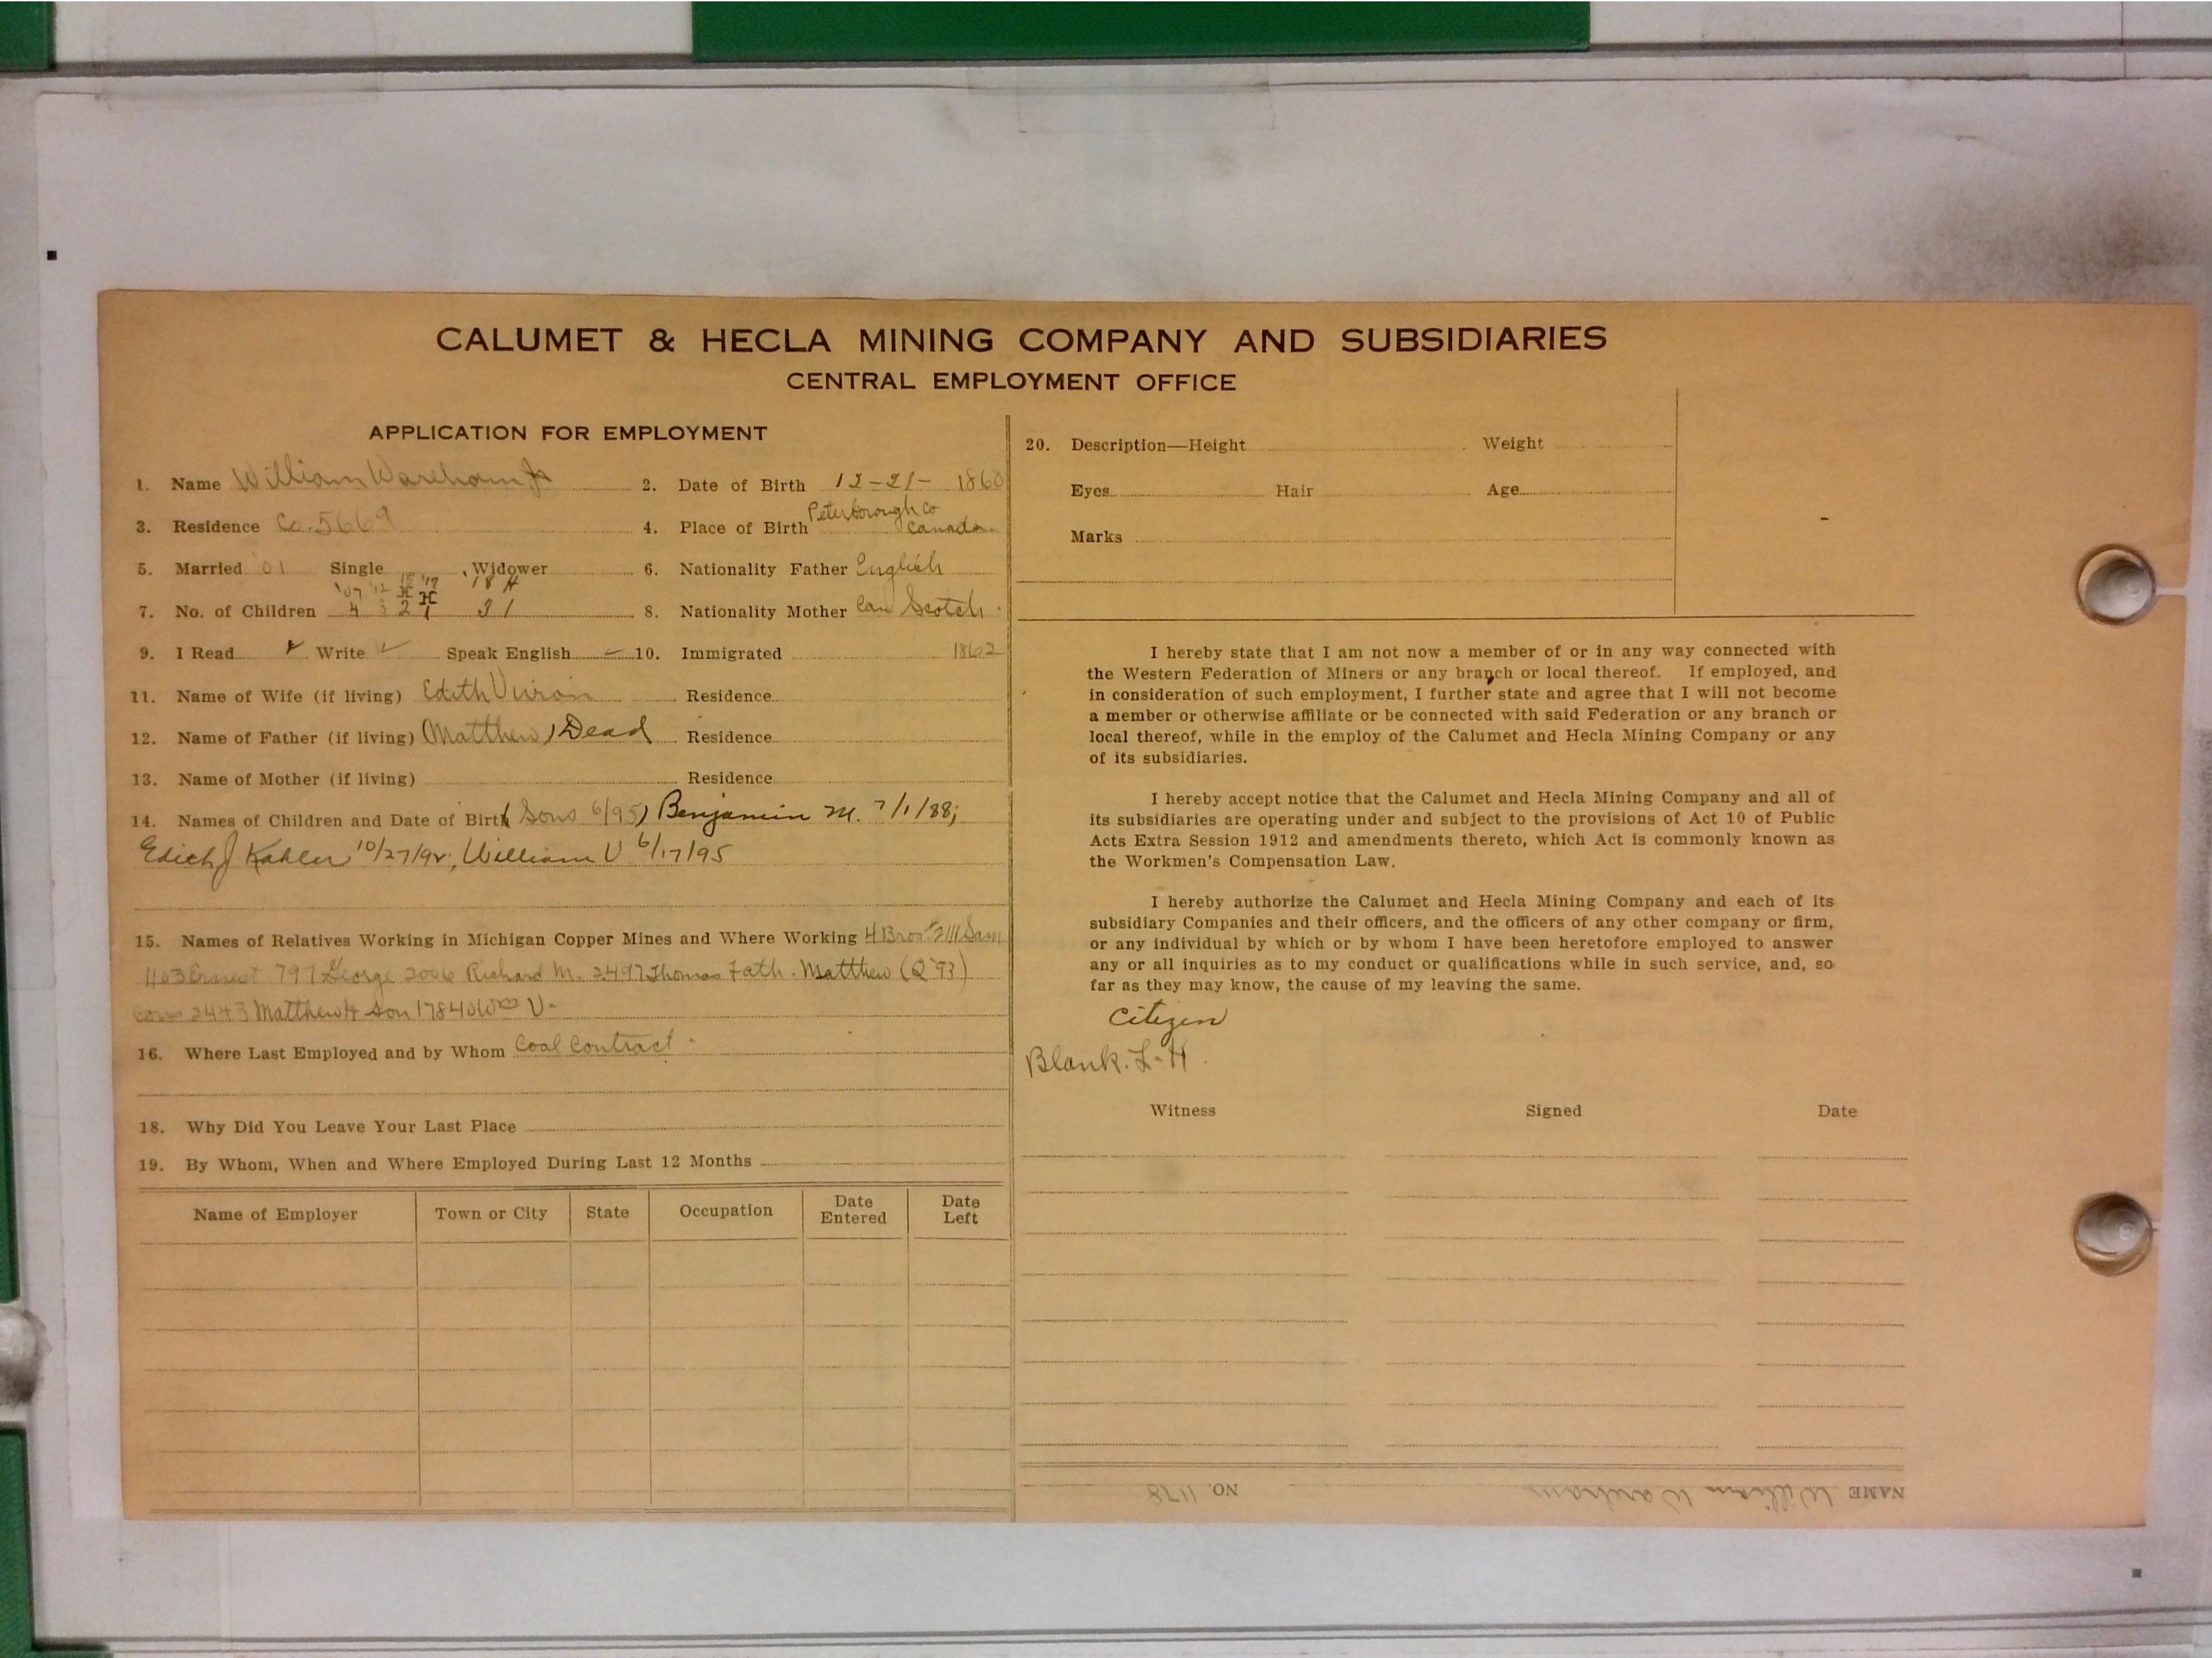 CALUMET & HECLA MINING COMPANY AND SUBSIDIARIES
CENTRAL EMPLOYMENT OFFICE
APPLICATION FOR EMPLOYMENT
1. Name William Wareham Jr 2. Date of Birth 12-21- 1860
3. Residence Co. 5669 4. Place of Birth Peterborough Co Canada
5. Married 01 Single Widower 6. Nationality Father English
'07 '12 '17 18 H
7. No. of Children 4 3 2 1 31 8. Nationality Mother Can Scotch
9. I Read ✓ Write ✓ Speak English 10. Immigrated 1862
11. Name of Wife (if living) Edith Residence
12. Name of Father (if living) (Matthew) Dead Residence
13. Name of Mother (if living) Residence
14. Names of Children and Date of Birth (Sons 6/95) Benjamin M. 7/1/88;
Edith J. Kahler 10/27/92; William V 6/17/95
15. Names of Relatives Working in Michigan Copper Mines and Where Working 4 Bros 2111 Sam
1103 Ernest 797 George 2006 Richard M. 2497 Thomas Fath. Matthew (Q '93)
2443 Matthew H Son 17840 Wm V.
16. Where Last Employed and by Whom Coal Contract
18. Why Did You Leave Your Last Place
19. By Whom, When and Where Employed During Last 12 Months
Name of Employer Town or City State Occupation Date Entered Date Left
20. Description—Height Weight
Eyes Hair Age
Marks
I hereby state that I am not now a member of or in any way connected with
the Western Federation of Miners or any branch or local thereof. If employed, and
in consideration of such employment, I further state and agree that I will not become
a member or otherwise affiliate or be connected with said Federation or any branch or
local thereof, while in the employ of the Calumet and Hecla Mining Company or any
of its subsidiaries.
I hereby accept notice that the Calumet and Hecla Mining Company and all of
its subsidiaries are operating under and subject to the provisions of Act 10 of Public
Acts Extra Session 1912 and amendments thereto, which Act is commonly known as
the Workmen's Compensation Law.
I hereby authorize the Calumet and Hecla Mining Company and each of its
subsidiary Companies and their officers, and the officers of any other company or firm,
or any individual by which or by whom I have been heretofore employed to answer
any or all inquiries as to my conduct or qualifications while in such service, and, so
far as they may know, the cause of my leaving the same.
Citizen
Blank. L-H.
Witness Signed Date
NAME William Wareham NO. 1178